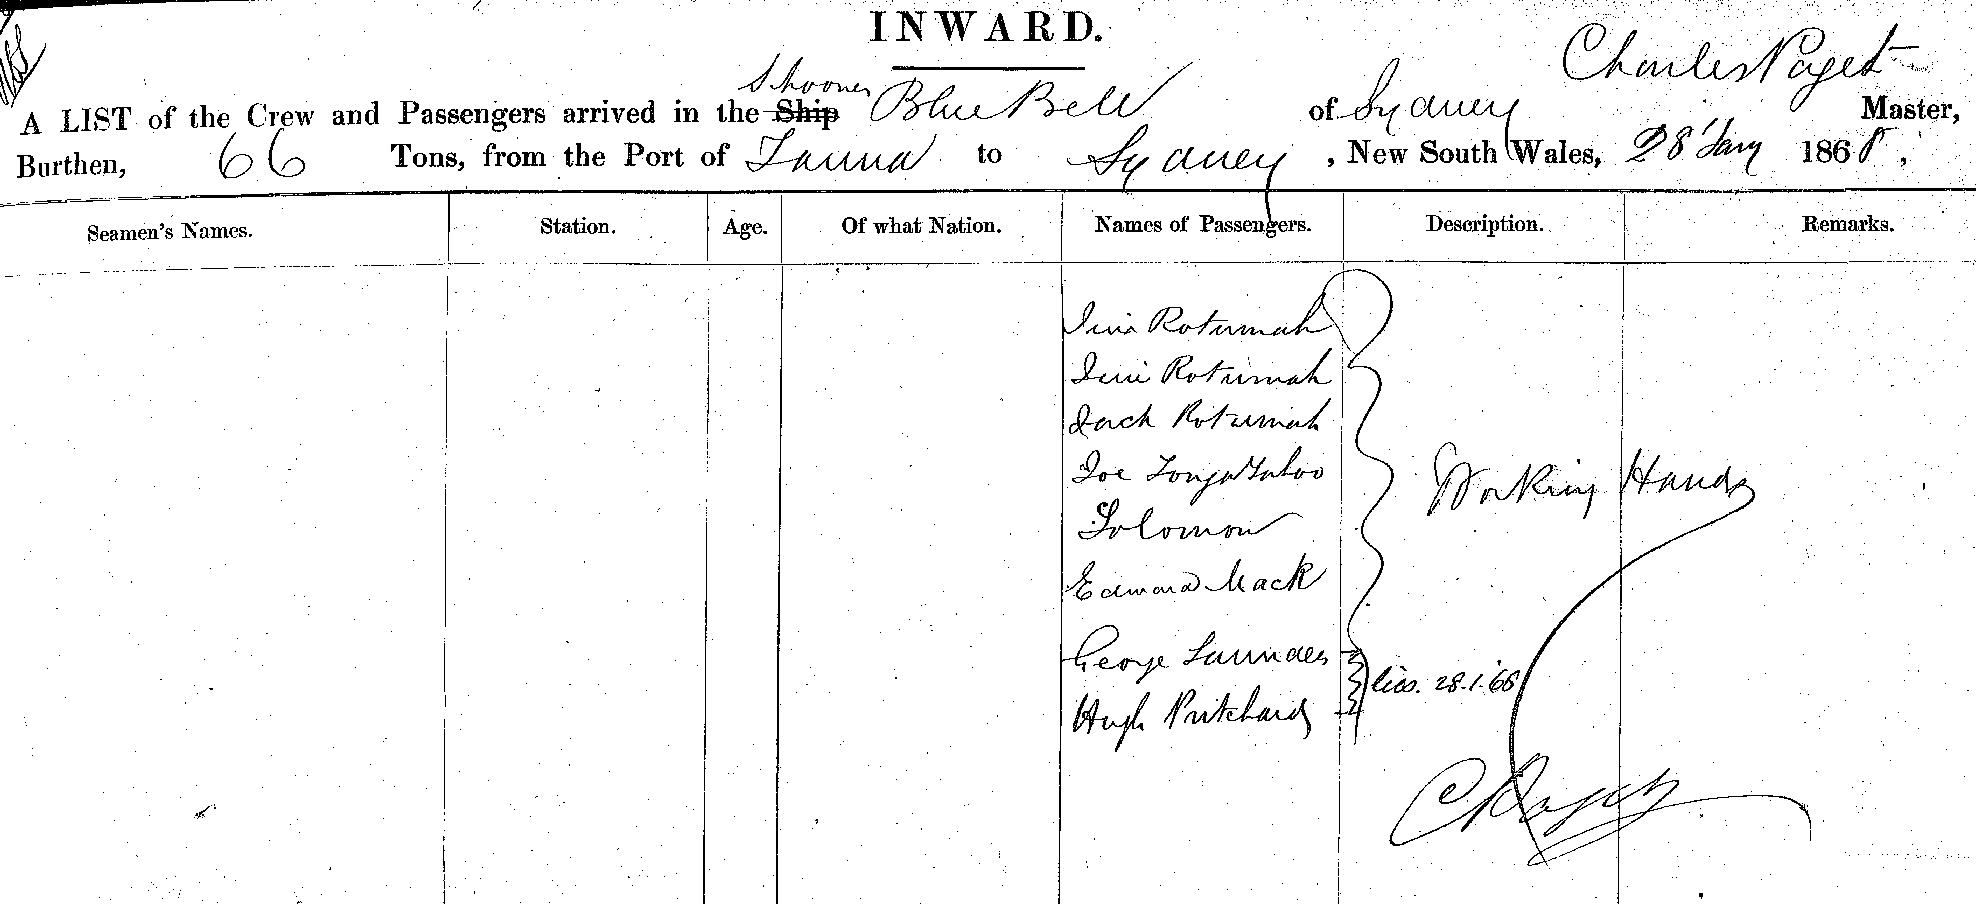 INWARD.
Charles Paget
Schooner
A LIST of the Crew and Passengers arrived in the Ship Blue Bell of Sydney Master,
Burthen, 66 Tons, from the Port of Tanna to Sydney, New South Wales, 28 Jany 1868,
Seamen's Names. Station. Age. Of what Nation. Names of Passengers. Description. Remarks.
Jim Rotumah
Jim Rotumah
Jack Rotumah
Joe Tongataboo
Working Hands
Solomon
Edward Mack
George Saunders
28.1.68
Hugh Pritchard
C Paget